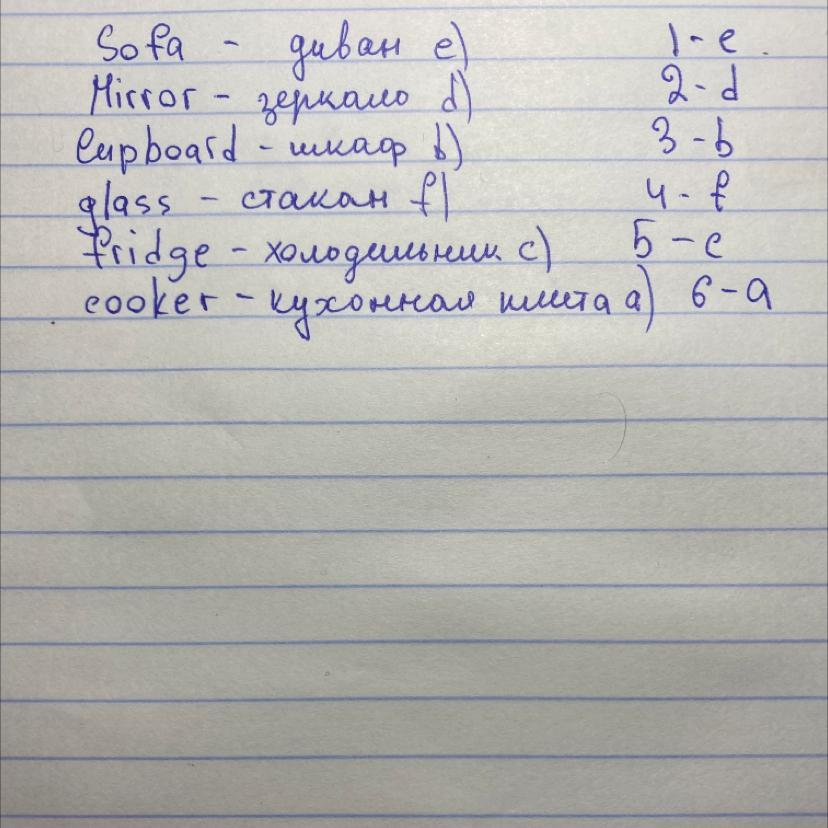 Sofa - диван e) 1-e.
Mirror - зеркало d) 2-d
Cupboard - шкаф b) 3-b
glass - стакан f) 4-f
fridge - холодильник c) 5-c
cooker - кухонная плита a) 6-a